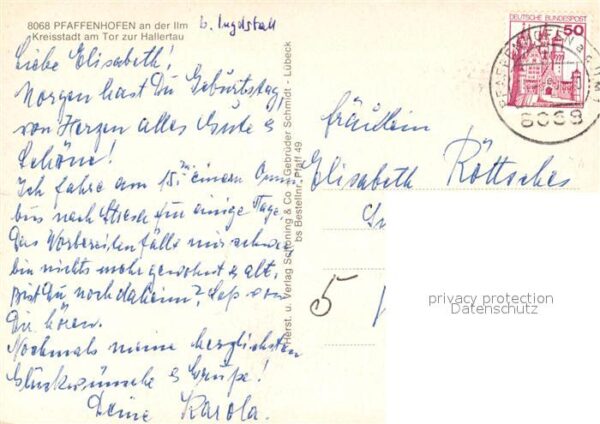 8068 PFAFFENHOFEN an der Ilm
Kreisstadt am Tor zur Hallertau
b. Ingolstadt
Liebe Elisabeth!
Morgen hast Du Geburtstag,
von Herzen alles Gute &
Schöne!
Ich fahre am 15. mit einem Omni
bus nach für einige Tage.
Das Vorbereiten fällt mir schwer
bin nichts mehr gewohnt & alt.
Bist Du noch daheim? Laß von
Dir hören.
Nochmals meine herzlichsten
Glückwünsche & Grüße!
Deine Karola.
Herst. u. Verlag Schöning & Co + Gebrüder Schmidt - Lübeck
bs Bestellnr. Pfaff 49
DEUTSCHE BUNDESPOST
50
8068
Fräulein
Elisabeth Röttsches
5
privacy protection
Datenschutz